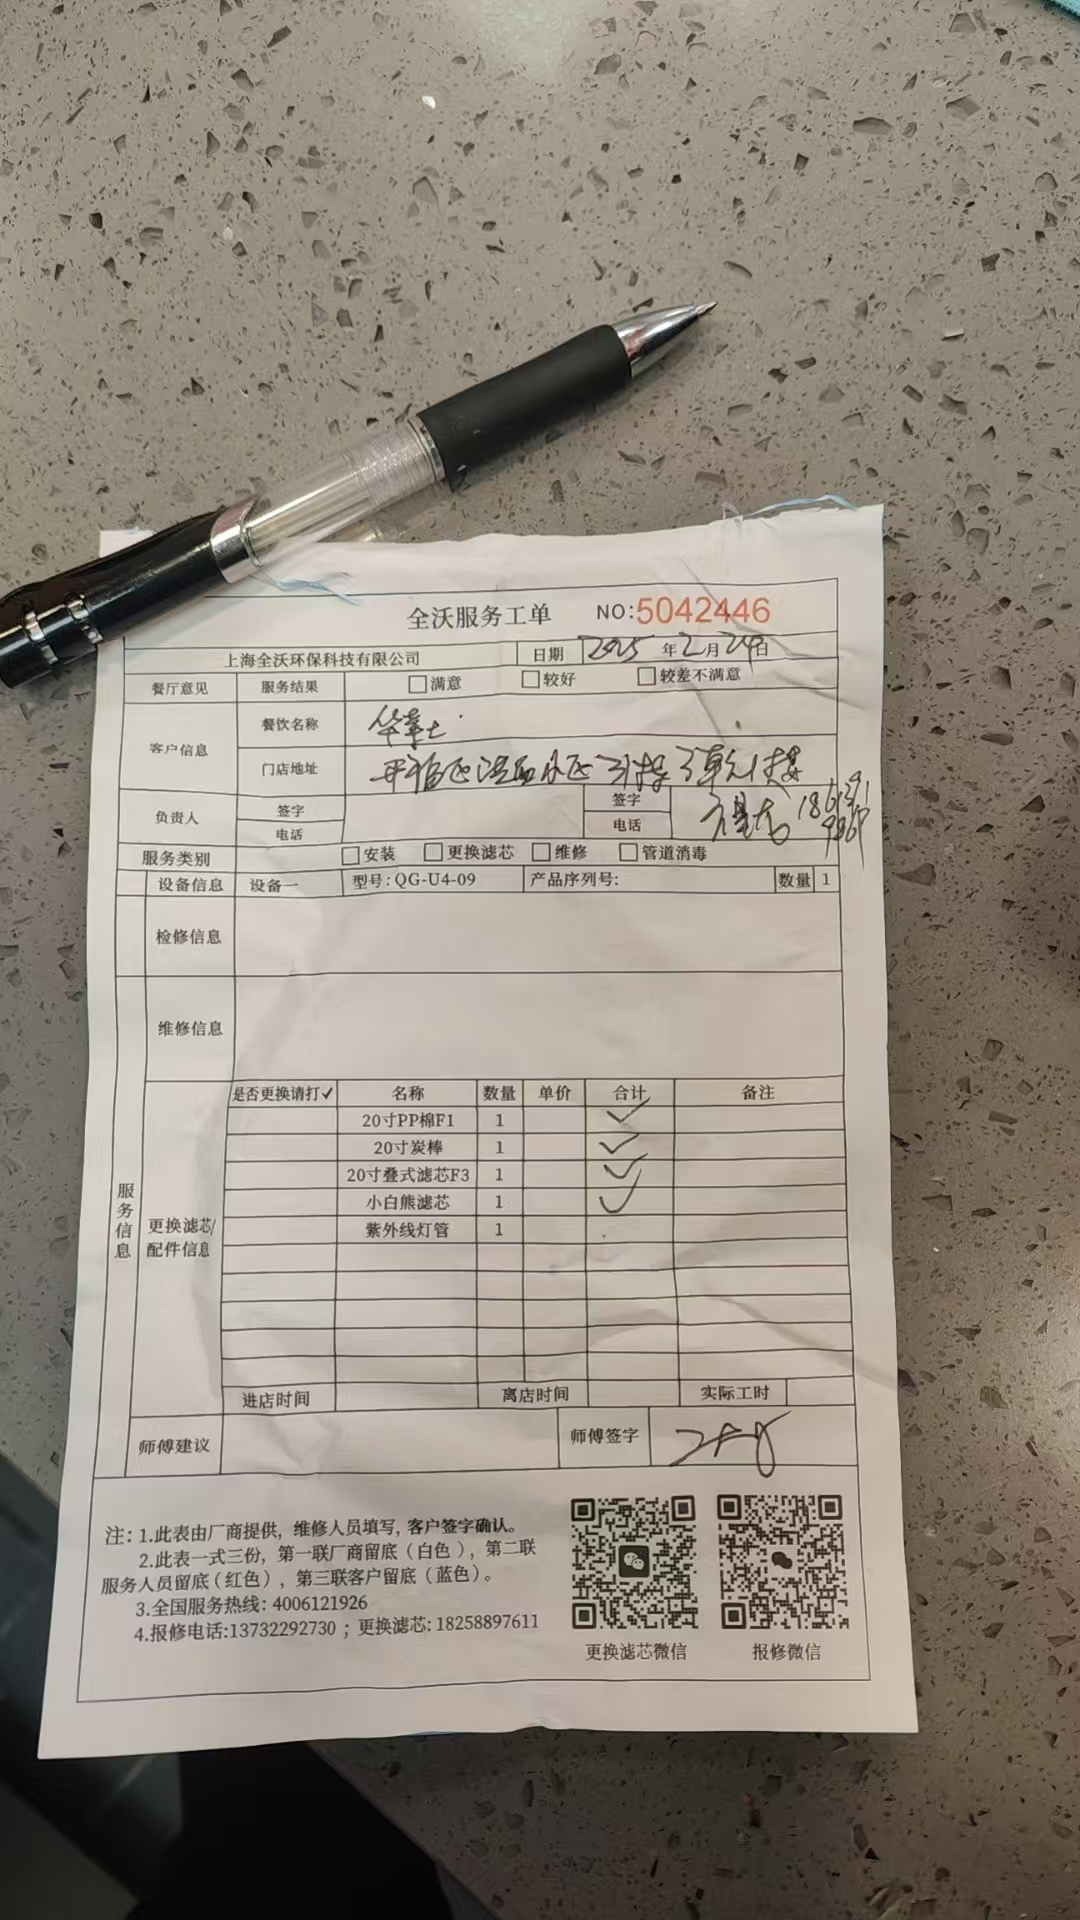 全沃服务工单 NO:5042446
上海全沃环保科技有限公司 日期 2025年2月24日
餐厅意见 服务结果 □满意 □较好 □较差不满意
客户信息 餐饮名称 华莱士
门店地址
负责人 签字 签字
电话 电话
服务类别 □安装 □更换滤芯 □维修 □管道消毒
设备信息 设备一 型号:QG-U4-09 产品序列号: 数量 1
检修信息
维修信息
服务信息
更换滤芯/配件信息
是否更换请打✓ 名称 数量 单价 合计 备注
20寸PP棉F1 1 ✓
20寸炭棒 1 ✓
20寸叠式滤芯F3 1 ✓
小白熊滤芯 1 ✓
紫外线灯管 1
进店时间 离店时间 实际工时
师傅建议 师傅签字
注: 1.此表由厂商提供, 维修人员填写, 客户签字确认。
2.此表一式三份, 第一联厂商留底(白色), 第二联
服务人员留底(红色), 第三联客户留底(蓝色)。
3.全国服务热线: 4006121926
4.报修电话:13732292730 ; 更换滤芯: 18258897611
更换滤芯微信 报修微信